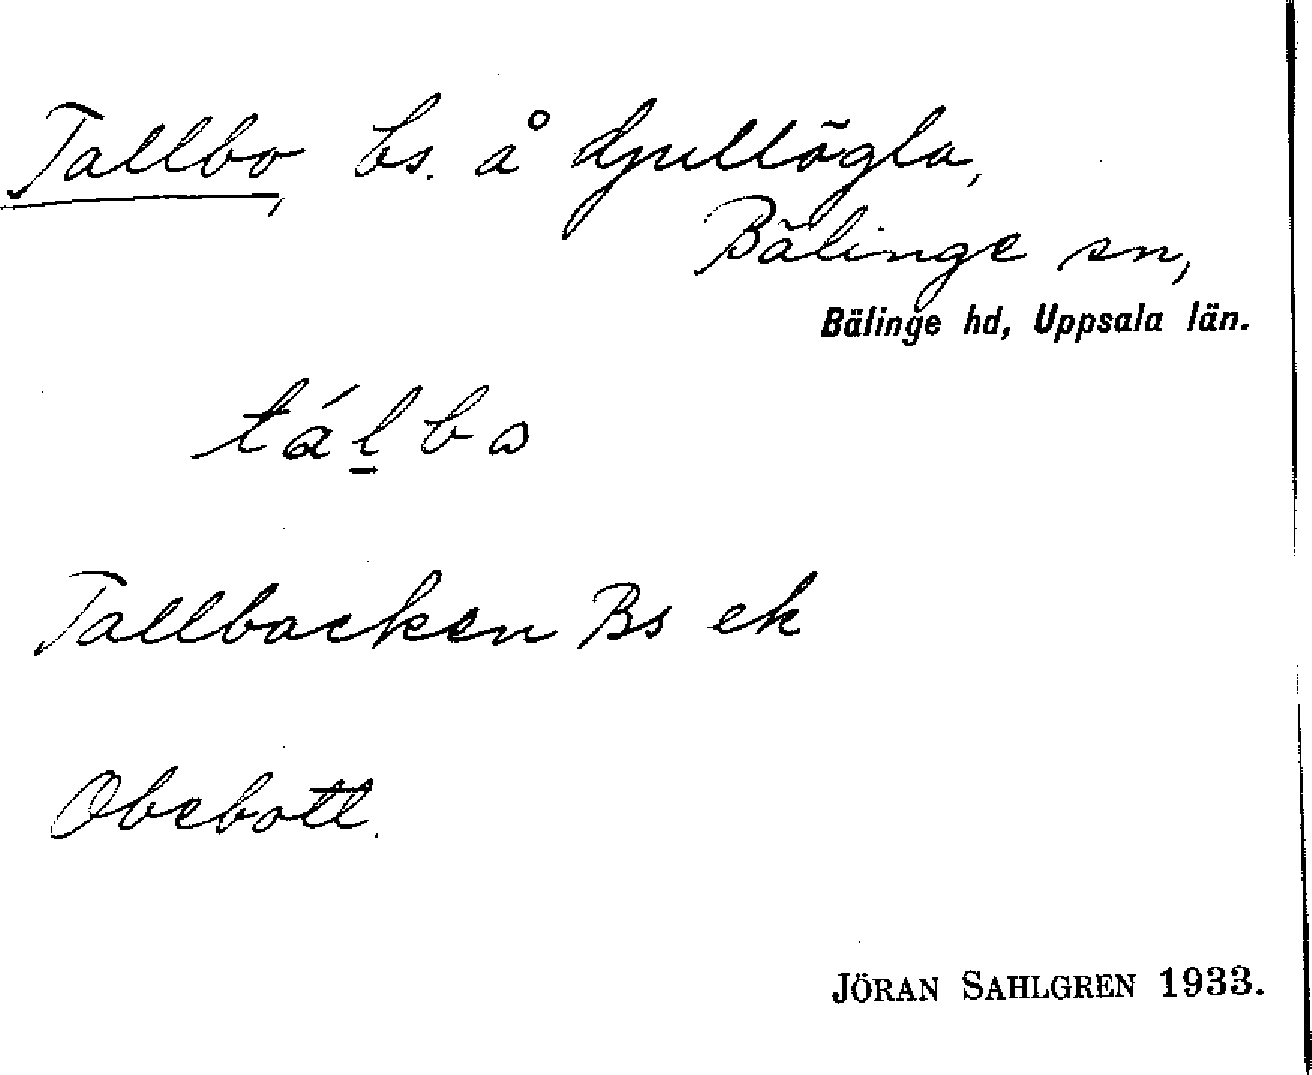 Tallbo, bs. å djullögla,
Bälinge sn,
Bälinge hd, Uppsala län.
tálbo
Tallbacken Bs ek
Obebott.
JÖRAN SAHLGREN 1933.